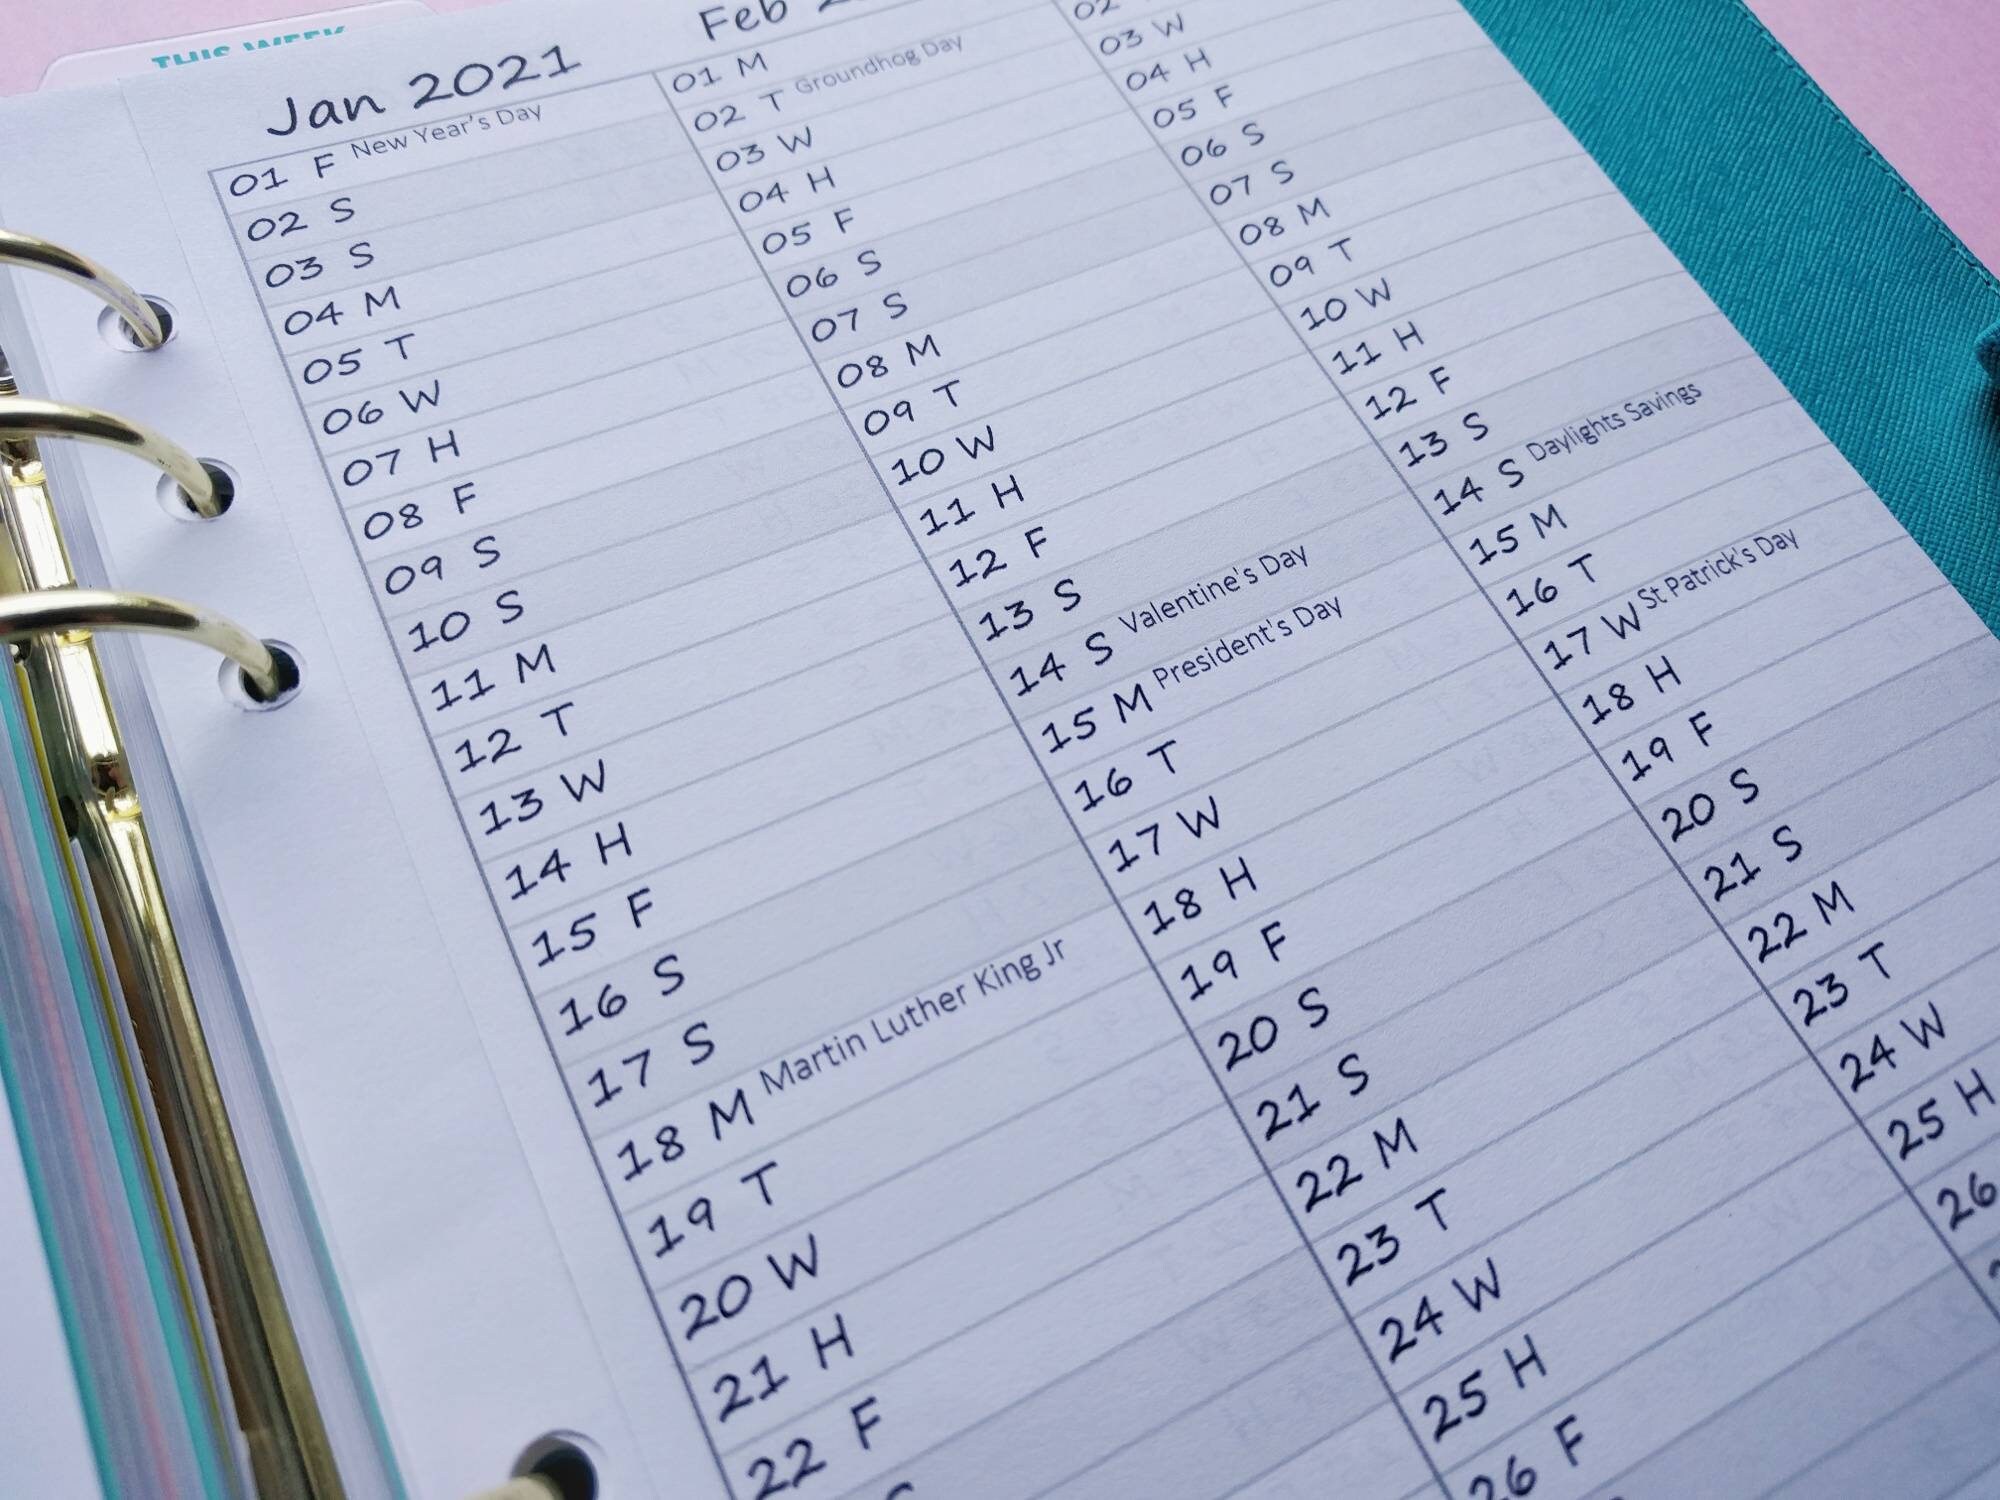 THIS WEEK
Jan 2021
01 F New Year's Day
02 S
03 S
04 M
05 T
06 W
07 H
08 F
09 S
10 S
11 M
12 T
13 W
14 H
15 F
16 S
17 S
18 M Martin Luther King Jr
19 T
20 W
21 H
22 F
Feb
01 M
02 T Groundhog Day
03 W
04 H
05 F
06 S
07 S
08 M
09 T
10 W
11 H
12 F
13 S
14 S Valentine's Day
15 M President's Day
16 T
17 W
18 H
19 F
20 S
21 S
22 M
23 T
24 W
25 H
26 F
02
03 W
04 H
05 F
06 S
07 S
08 M
09 T
10 W
11 H
12 F
13 S
14 S Daylights Savings
15 M
16 T
17 W St Patrick's Day
18 H
19 F
20 S
21 S
22 M
23 T
24 W
25 H
26